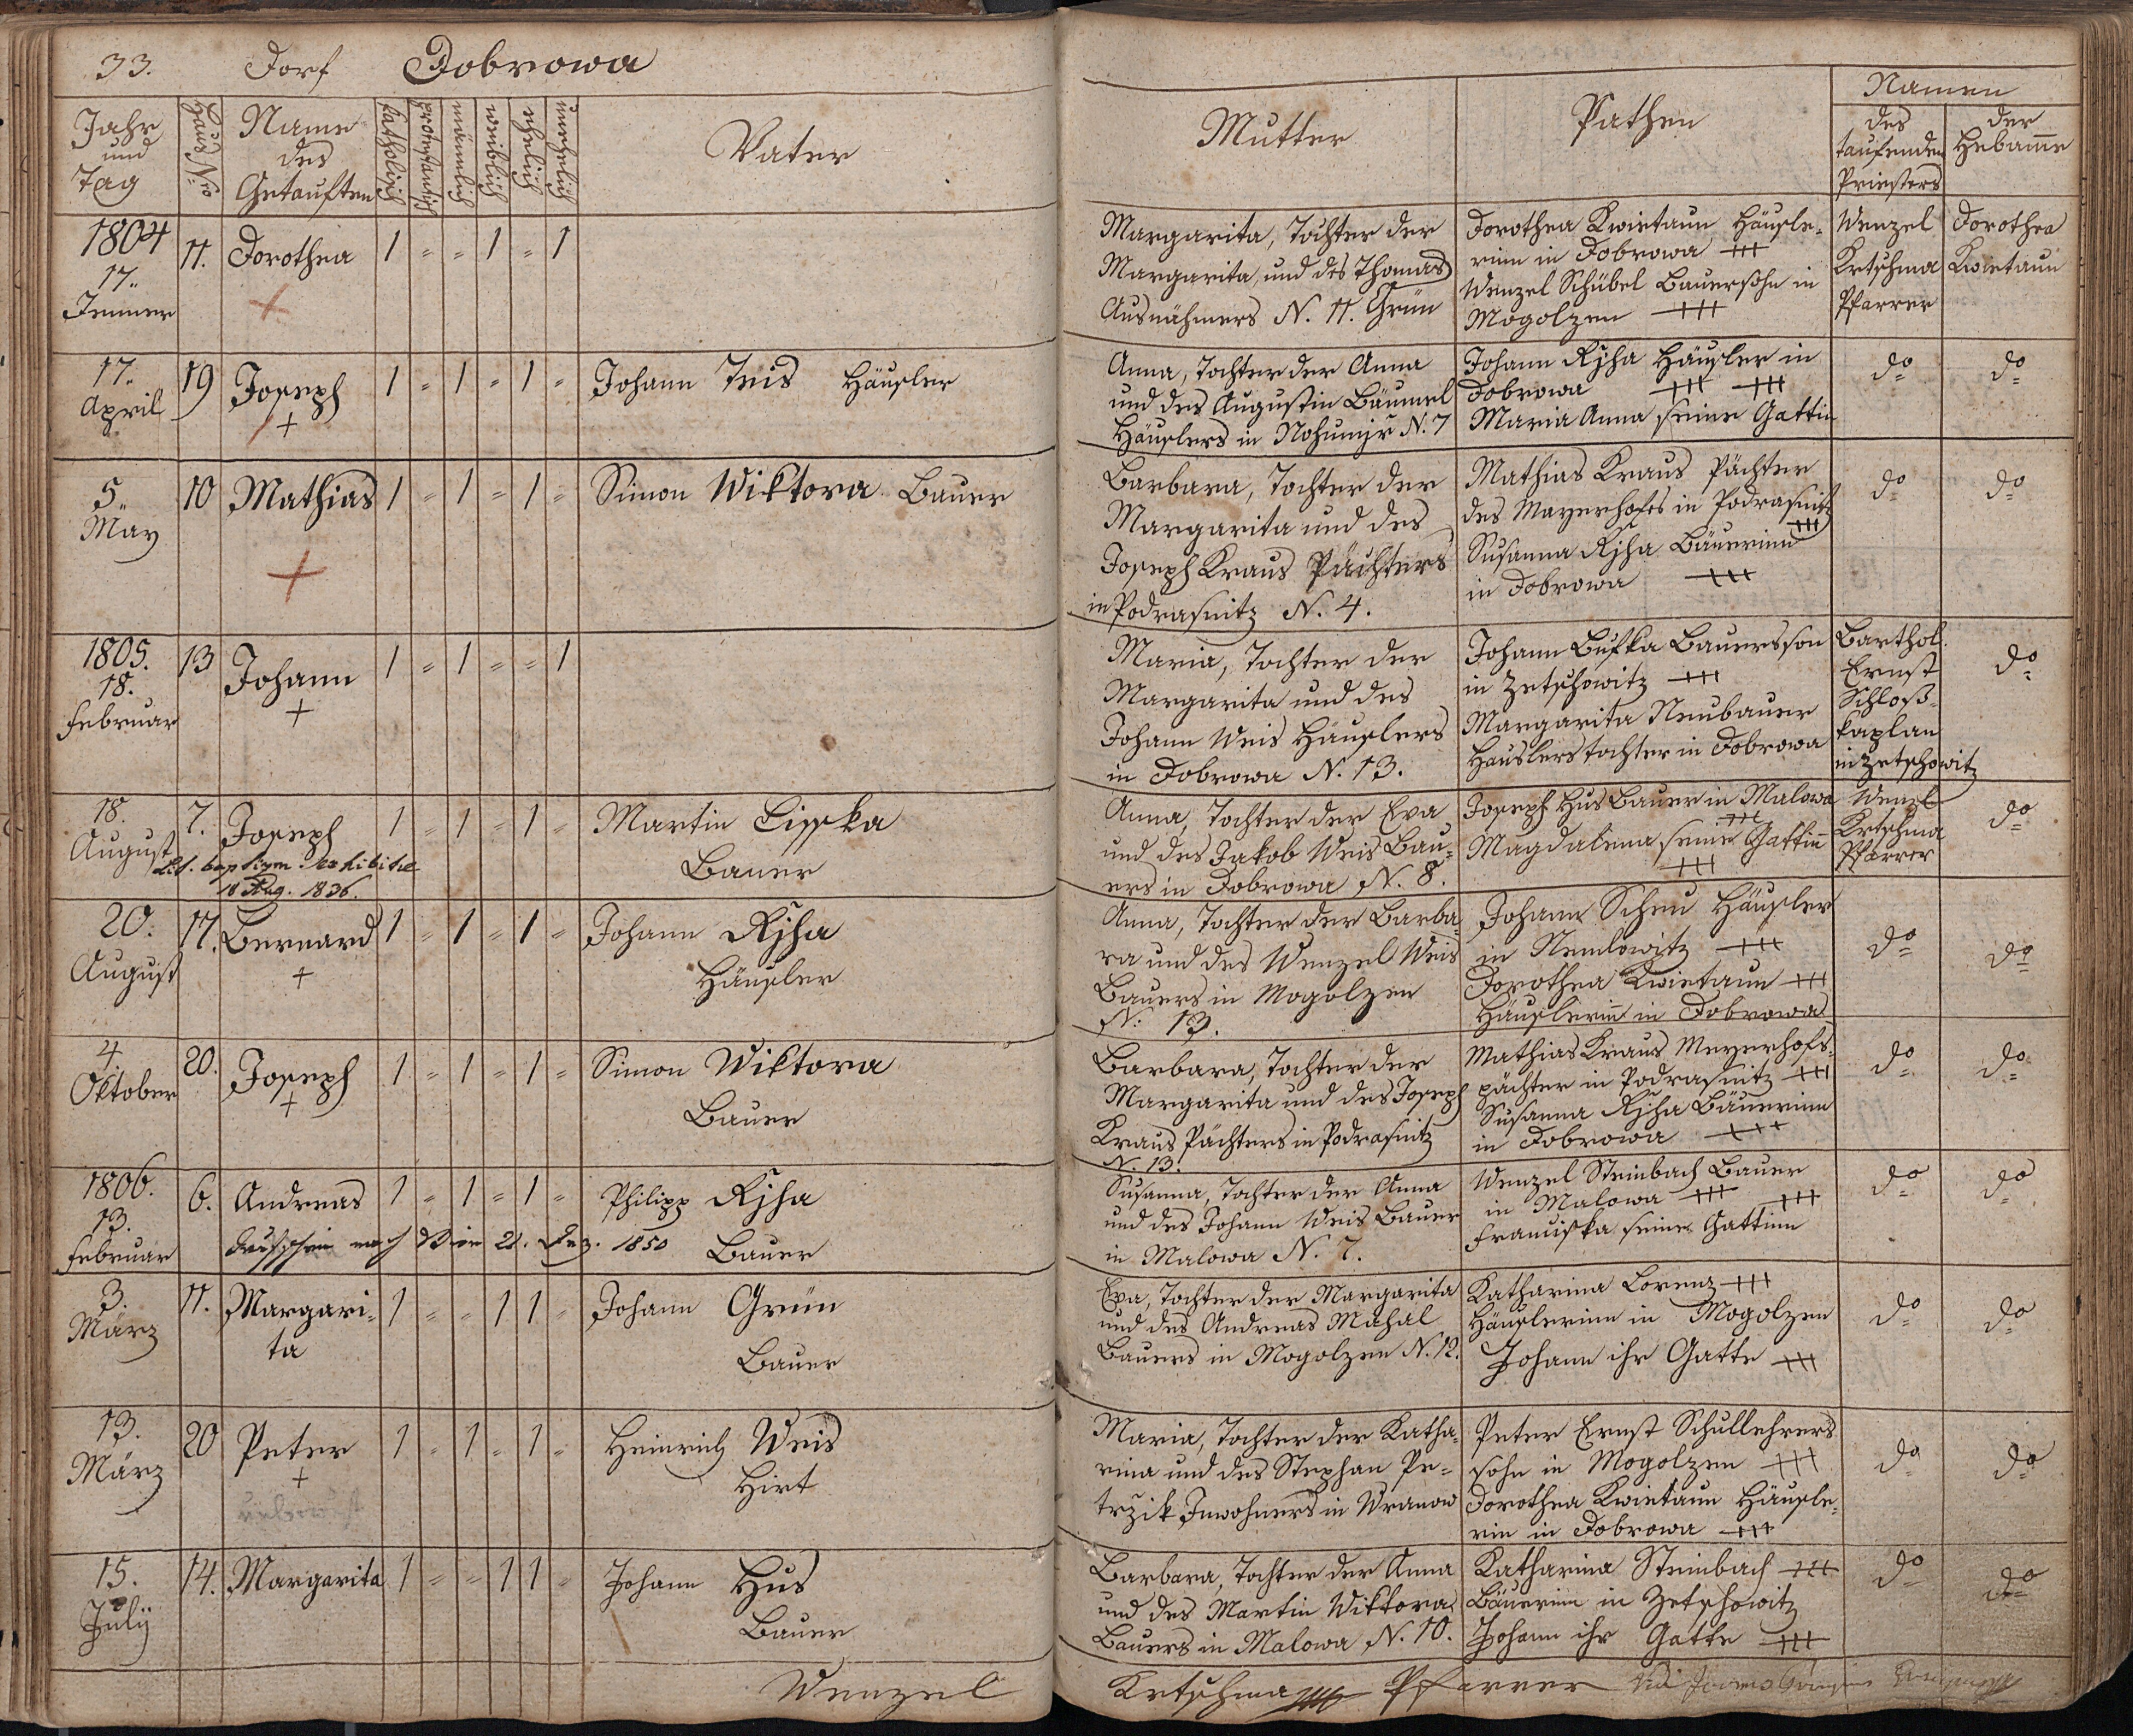 33. Dorf Dobrowa
Jahr
und
Tag
Haus Nro
Name
des
Getauften
katholisch
protestantisch
männlich
weiblich
ehelich
unehelich
Vater
Mutter
Pathen
Namen
des
taufenden
Priesters
der
Hebam̅e
1804
17.
Jenner
11. Dorothea 1 = = 1 = 1
Margarita, Tochter der
Margarita, und des Thomas
Ausnähmers N. 11. Grün
Dorothea Kwietaun Häusle=
rinn in Dobrowa +++
Wenzel Schübel Bauersohn in
Mogolzen +++
Wenzel
Krtschma
Pfarrer
Dorothea
Kwietaun
17.
April
19 Joseph 1 = 1 = 1 =
+
Johann Teis Häusler
Anna, Tochter der Anna
und des Augustin Bäumel
Häuslers in N. 7
Johann Rjha Häusler in
Dobrowa +++ +++
Maria Anna seine Gattin
do
do
5.
May
10 Mathias 1 = 1 = 1 =
+
Simon Wiktora Bauer
Barbara, Tochter der
Margarita und des
Joseph Kraus Pächters
in Podrasnitz N. 4.
Mathias Kraus Pächter
des Mayerhofes in Podrasnitz
+++
Susanna Rjha Bäuerinn
in Dobrowa +++
do
do
1805.
18.
Februar
13 Johann 1 = 1 = = 1
+
Maria, Tochter der
Margarita und des
Johann Weis Häuslers
in Dobrowa N. 13.
Johann Bufka Bauersson
in Zetschowitz +++
Margarita Neubauer
Häuslerstochter in Dobrowa
Barthol.
Ernst
Schloß=
kaplan
in Zetschowitz
do
18.
August
7. Joseph 1 = 1 = 1 =
Lit. baptism. exhibitae
18 Aug. 1836.
Martin Cisska
Bauer
Anna, Tochter der Eva
und des Jakob Weis Bau=
ers in Dobrowa N. 8.
Joseph Hus Bauer in Malowa
+++
Magdalena seine Gattin̅
+++
Wenzl
Krtschma
Pfarrer
do
20.
August
17. Bernard 1 = 1 = 1 =
+
Johann Rjha
Häusler
Anna, Tochter der Barba
ra und des Wenzel Weis
Bauers in Mogolzen
N. 13.
Johann Scheu Häusler
in Nemlowitz +++
Dorothea Kwietaun +++
Häuslerin̅ in Dobrowa
do
do
4.
Oktober
20. Joseph 1 = 1 = 1 =
+
Simon Wiktora
Bauer
Barbara, Tochter der
Margarita und des Joseph
Kraus Pächters in Podrasnitz
N. 13.
Mathias Kraus Meyerhofs=
pächter in Podrasnitz +++
Susanna Rjha Bäuerinn
in Dobrowa +++
do
do
1806.
13.
Februar
6. Andreas 1 = 1 = 1 =
Taufschein nach Wien 21. 1850
Philipp Rjha
Bauer
Susanna, Tochter der Anna
und des Johann Weis Bauer
in Malowa N. 7.
Wenzel Steinbach Bauer
in Malowa +++ +++
Franziska seine Gattinn
do
do
3.
März
11. Margari= 1 = = 1 1 =
ta
Johann Grün
Bauer
Eva, Tochter der Margarita
und des Andreas Mahal
Bauers in Mogolzen N. 12.
Katharina Lorenz +++
Häuslerinn in Mogolzen
Johann ihr Gatte +++
do
do
13.
März
20 Peter 1 = 1 = 1 =
+
Heinrich Weis
Hirt
Maria, Tochter der Katha=
rina und des Stephan Pe=
tržik Inwohners in Wranow
Peter Ernst Schullehrers
sohn in Mogolzen +++
Dorothea Kwietaun Häusle=
rin in Dobrowa +++
do
do
15.
Julij
14. Margarita 1 = = 1 1 =
Johann Hus
Bauer
Barbara, Tochter der Anna
und des Martin Wiktora
Bauers in Malowa N. 10.
Katharina Steinbach +++
Bäuerinn in Zetschowitz
Johann ihr Gatte +++
do
do
Wenzel Krtschma Pfarrer